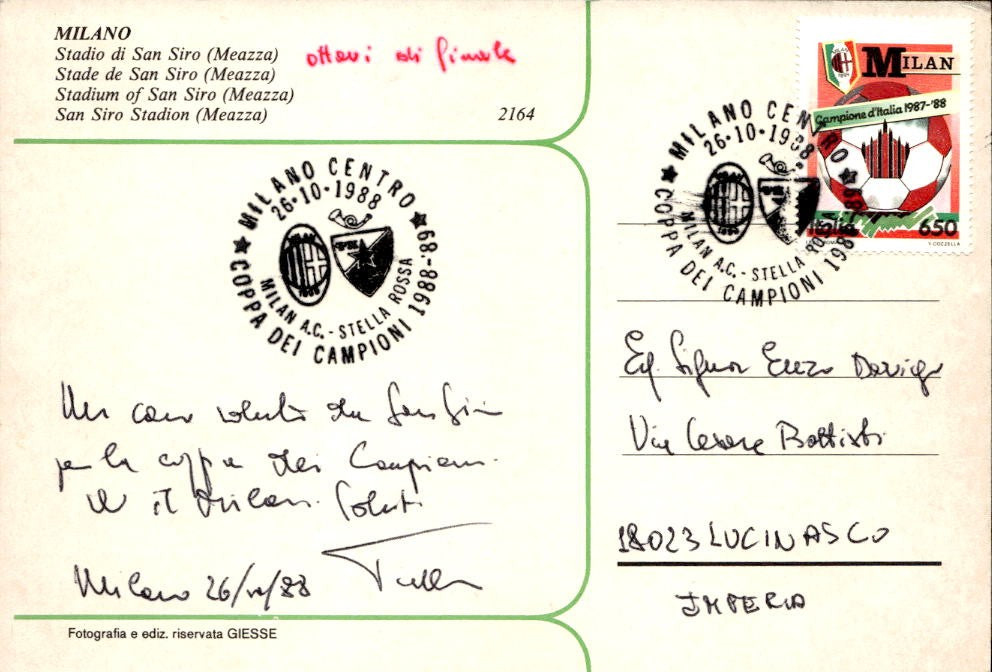 MILANO
Stadio di San Siro (Meazza)
Stade de San Siro (Meazza)
Stadium of San Siro (Meazza)
San Siro Stadion (Meazza)
2164
ottavi di finale
MILAN
Campione d'Italia 1987-'88
Italia 650
V. COZZELLA
MILANO CENTRO
26-10-1988
MILAN A.C. - STELLA ROSSA
COPPA DEI CAMPIONI 1988-89
MILANO CENTRO
26-10-1988
MILAN A.C. - STELLA ROSSA
COPPA DEI CAMPIONI 1988-89
Un caro saluto da San Siro
per la coppa dei Campioni.
W il Milan. Saluti
Milano 26/10/88
Eg. Signor Enzo
Via Cesare Battisti
18023 LUCINASCO
IMPERIA
Fotografia e ediz. riservata GIESSE